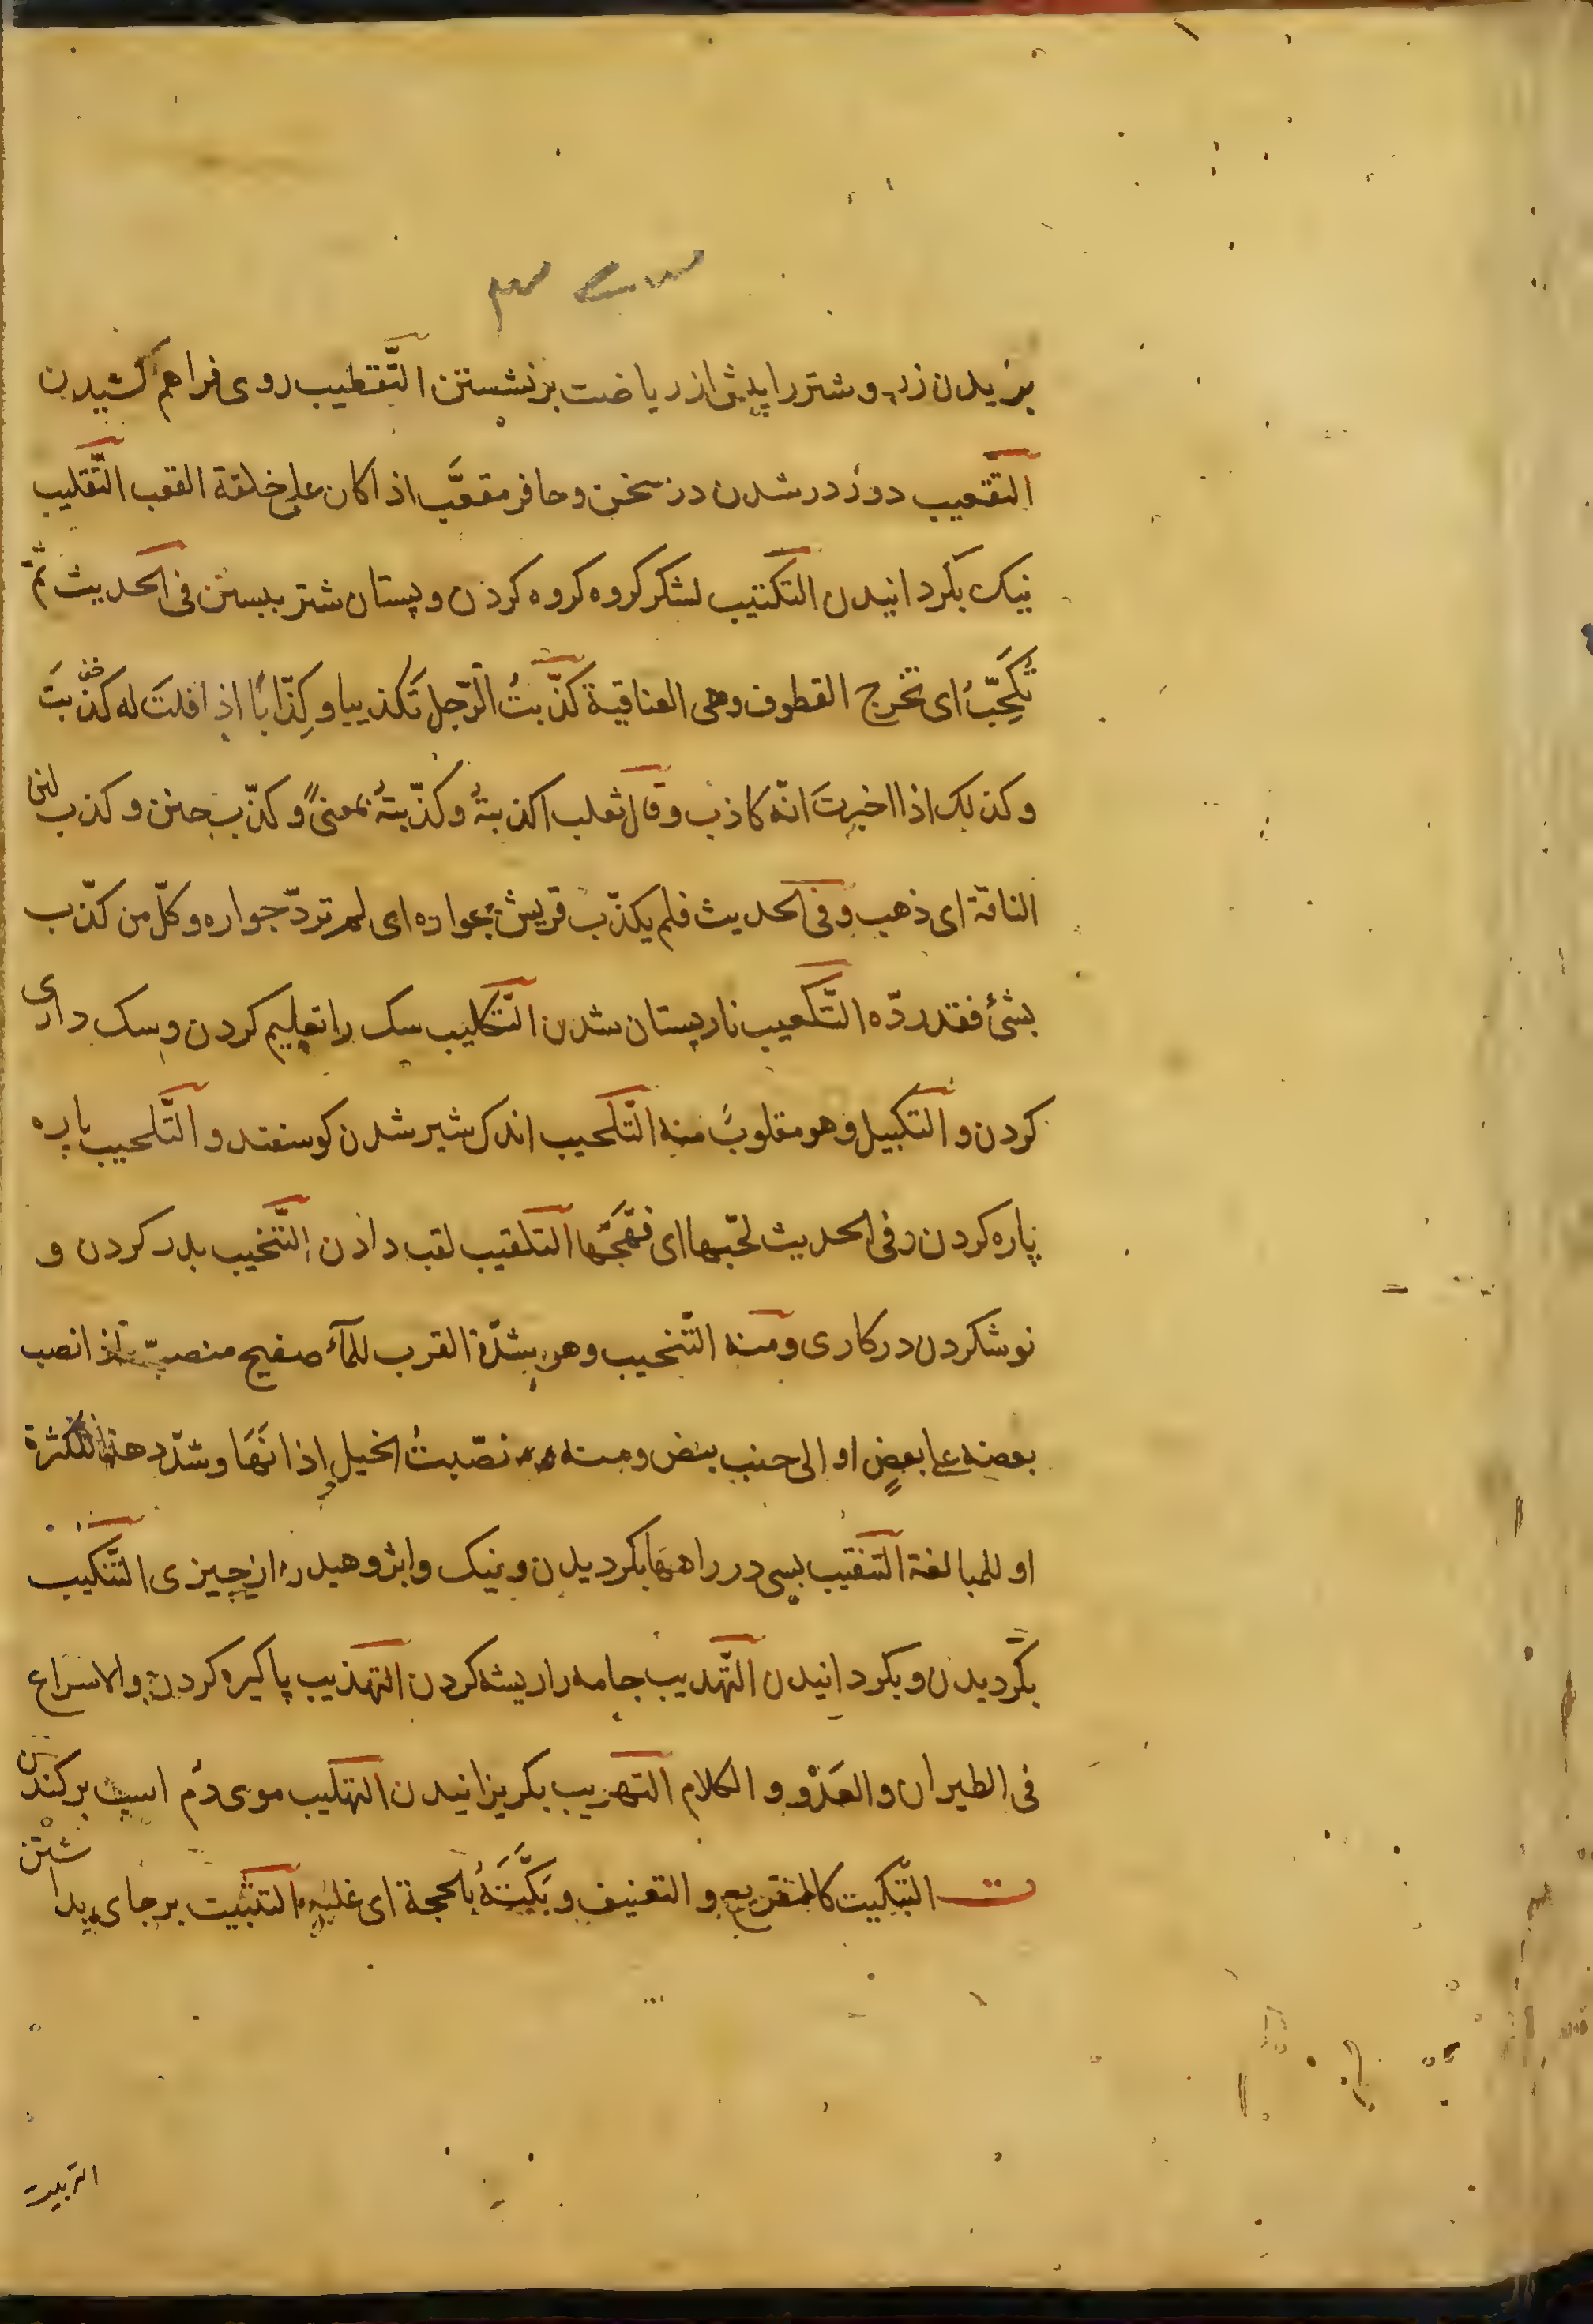 بریدن رز و شتر را پیش از ریاضت برنشستن التَّقطیب روی فراهم کشیدن
التقعیب دور در شدن در سخن و حافر مقعَّب اذا کان علی خلقة القعب التَّقلیب
نیک بگردانیدن التکتیب لشکر کروه کروه کردن و پستان شتر ببستن فی الحدیث ثمّ
تُکَحِّبُ ای تخرج القطوف وهی العناقیة کذّبتُ الرّجل تکذیبا و کِذّابًا اذا قلتَ له کذبتَ
وکذلک اذا اخبرتَ انّه کاذب وقال ثعلب اکذبتهُ وکذّبتهُ بمعنیً وکذّب جبن وکذب لبن
الناقة ای ذهب وفی الحدیث فلم یکذّب قریش بجواره ای لم تردّ جواره وکلّ من کذّب
بشئ فقد ردّه التَّکعیب نار پستان شدن التَّکلیب سک را تعلیم کردن و سک داری
کردن و التکبیل وهو مقلوبٌ منه التّلحیب اندک شیر شدن کوسفند و التَّلحیب پاره
پاره کردن وفی الحدیث لحّبها ای نهّجها التلقیب لقب دادن التَّنخیب بدر کردن و
نوشکردن در کاری ومنه التَّنحیب وهو شدّة القرب للمآء صفیح منصبّ اذا نصب
بعضه علی بعضٍ او الی جنب بعض ومنه نصّبتُ الخیل اذانَهَا وشدّد هذا للکثرة
او للمبالغة التنقیب بسی در راهها بکردیدن و نیک وابژوهیدن از چیزی التَّنکیب
بگردیدن و بکردانیدن التَّهدیب جامه را ریشه کردن التهذیب پاکیزه کردن والاسراع
فی الطیران والعَدْو و الکلام التهریب بکریزانیدن التهلیب موی دم اسب برکندن
ت التّبکیت کالتقریع و التعنیف و بَکَّتَهُ بالحجة ای غلبه التثبیت بر جای بداشتن
التربیت